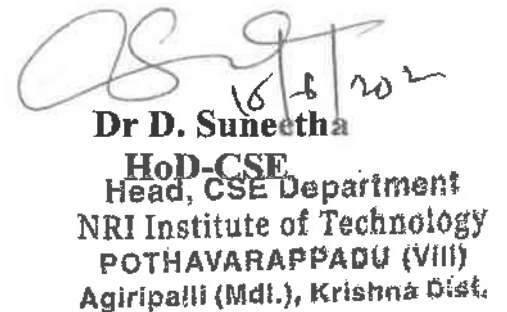 Dr D. Suneetha
HoD-CSE
Head, CSE Department
NRI Institute of Technology
POTHAVARAPPADU (Vill)
Agiripalli (Mdl.), Krishna Dist.